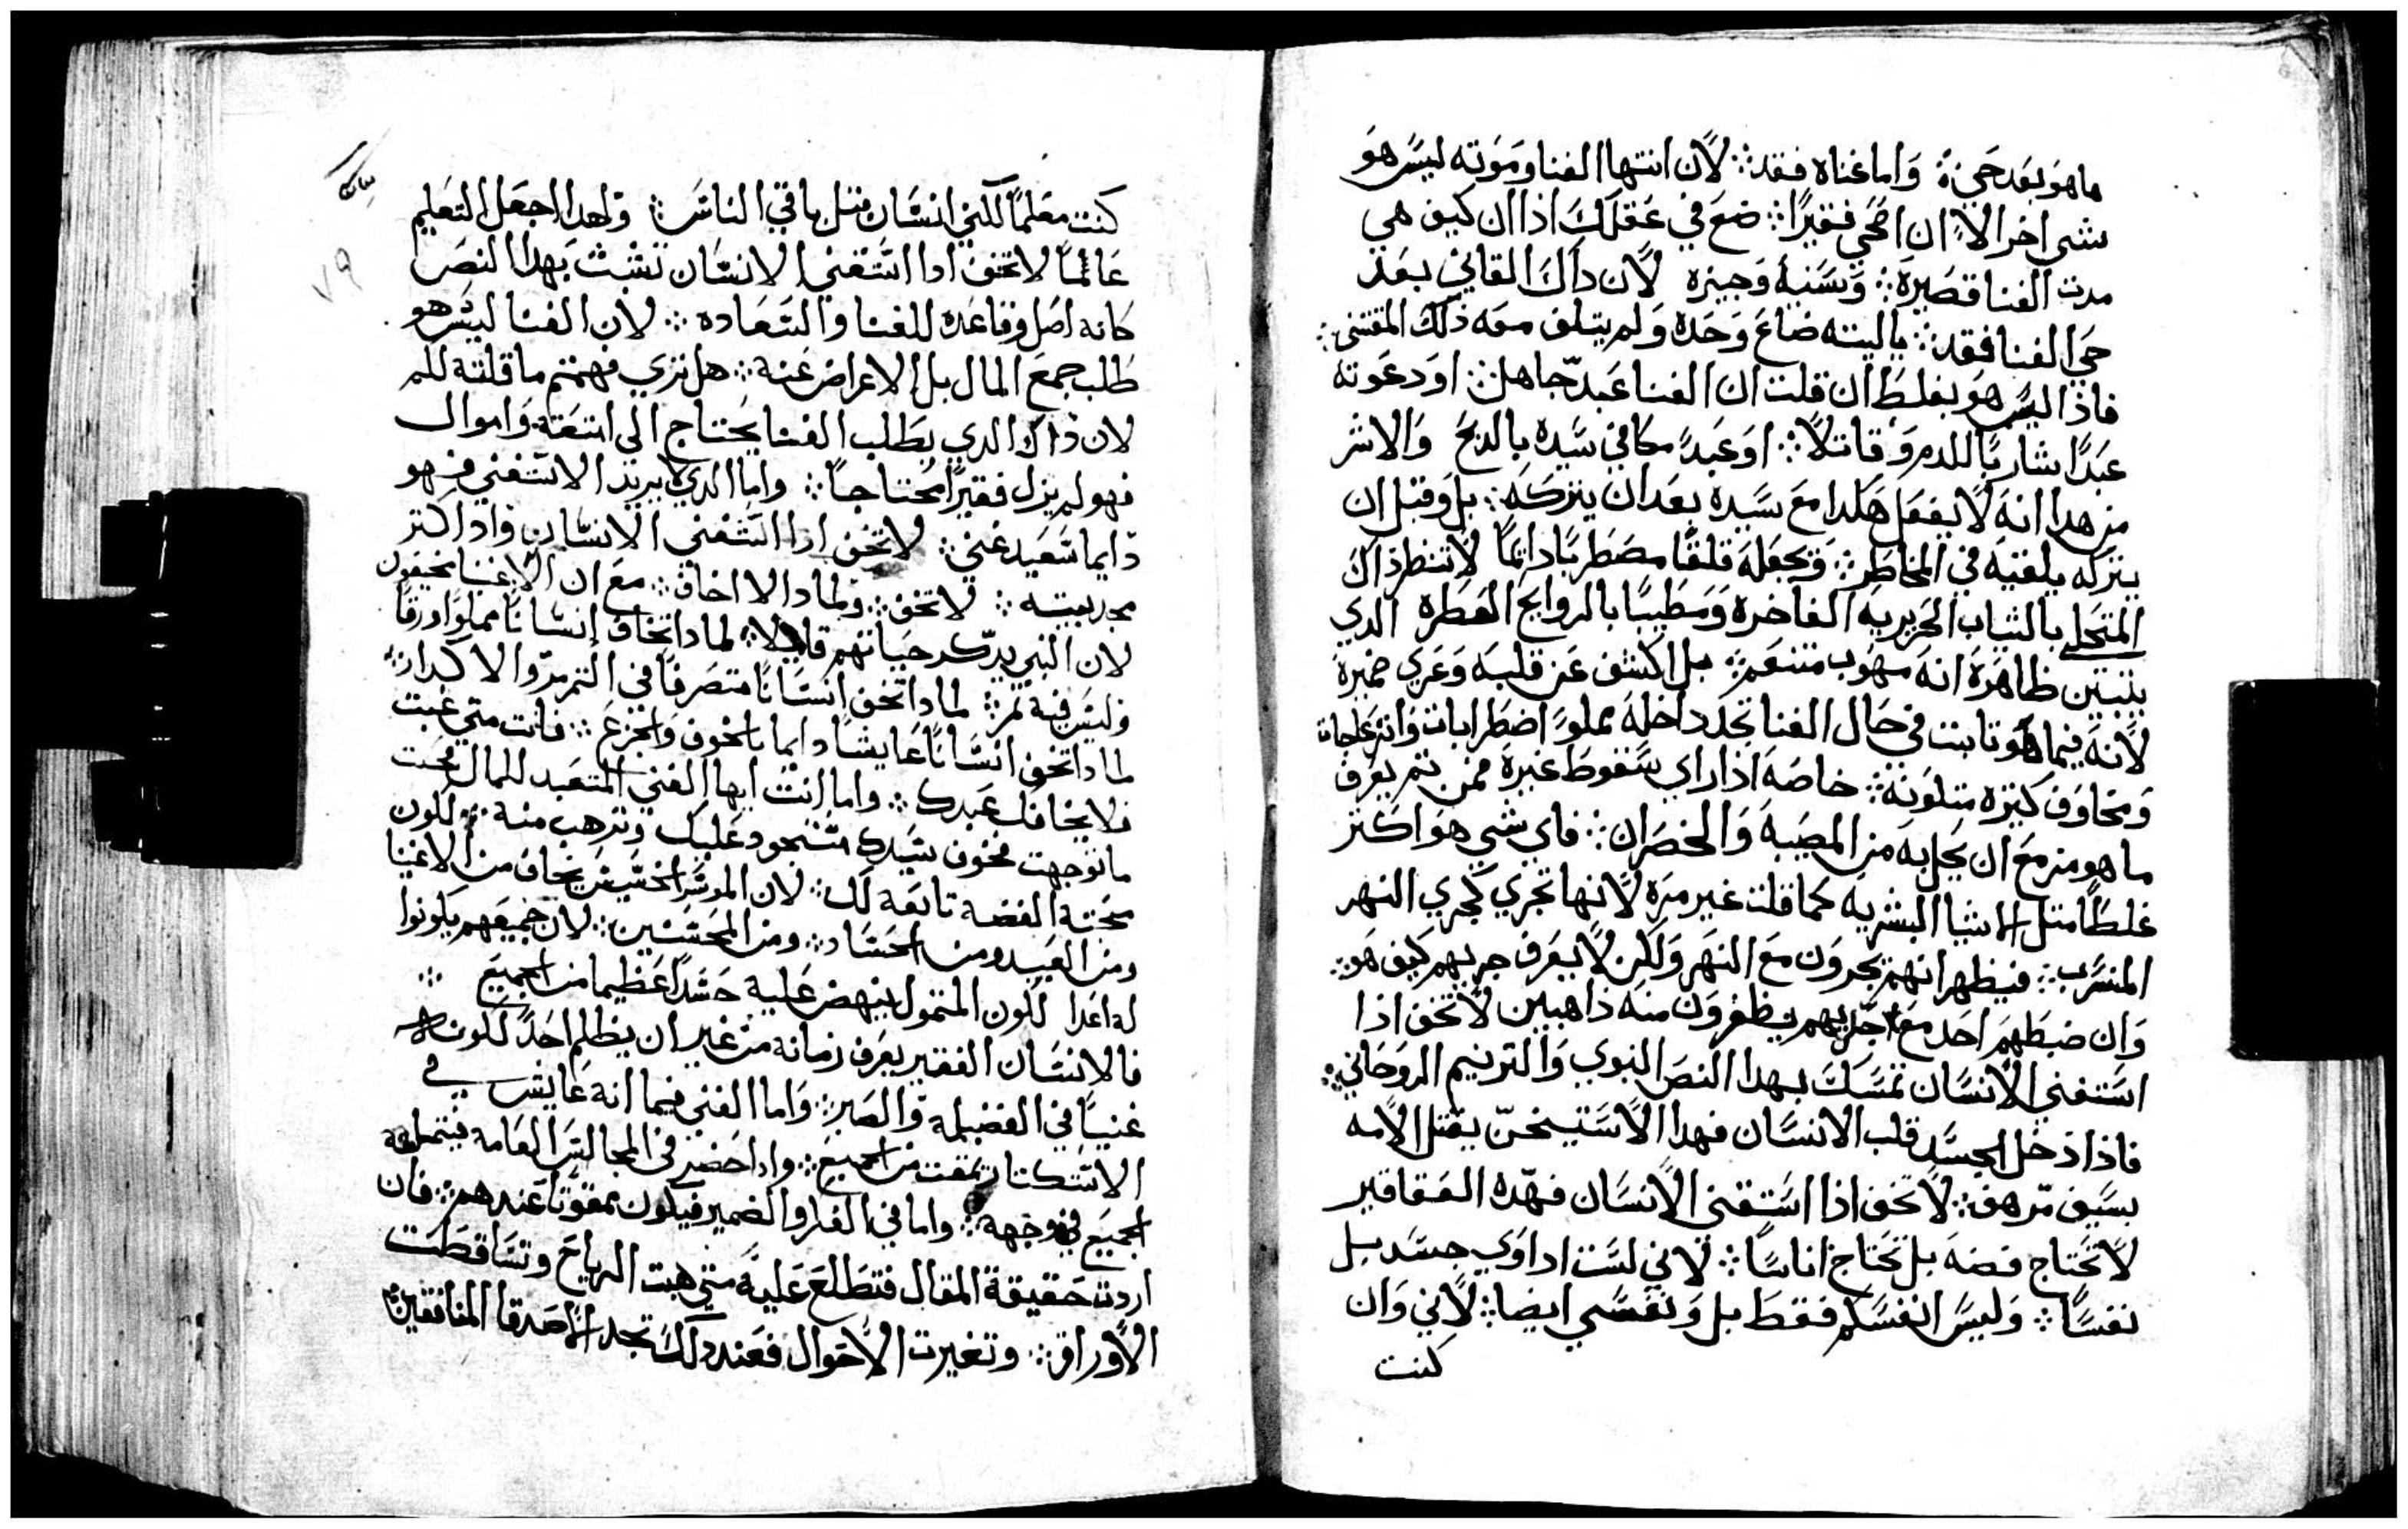 ما هو بعد حي ۞ واما غناه فقد ۞ لان انتها الغنا وموته ليس هو
شي اخر الا ان اضحي فقيرًا ۞ ضع في عقلك اذا ان كيف هي
مدت الغنا قصيرة ۞ وسنيه وجيزه لان داك القاني بعد
حي الغنا فقد ۞ ياليته ضاع وحده ولم يتلف معه ذلك المقتني ۞
فاذا ليس هو بغلط ان قلت ان الغنا عبد جاهل ۞ او دعوته
عبدًا شاربًا للدم وقاتلًا ۞ او عبدً مكافي سيده بالدبح والاشر
من هدا انه لا يفعل هكدا مع سيده بعد ان يتركه ۞ بل وقبل ان
يتركه يلقيه في المخاطر ۞ ويجعله قلقًا مضطربًا دائمًا لا تنظر ذاك
المتحلي بالثياب الحريريه الفاخرة ومطيبًا بالروايح العطره الدي
بنبتين ظاهره انه مهوب متنعم ۞ بل اكشف عن قلبه وعري ضميره
لانه فيما هو تابت في حال الغنا تجد داخله مملوً اضطرابات وانزعاجات
ومخاوف كتيره متلونه ۞ خاصه اذا راي سقوط غيره فمن تم يعرف
ما هو مزمع ان يحل به من المصيبه والخصران ۞ فاي شي هو اكتر
غلطًا متل الاشيا البشريه كما قلت غير مره لانها تجري كجري النهر
المنسرب ۞ فيظهر انهم يجرون مع النهر ولكن لا يعرف جريهم كيف هو ۞
وان ضبطهم احد مع اجل بهم يظفرون منه ذاهبين لا تخف اذا
استغني الانسان تمسك بهدا النص النبوي والترنيم الروحاني ۞
فاذا دخل الجسد قلب الانسان فهدا الاستيسخن يقتل الامه
بسيف مرهف ۞ لا تخف اذا استغني الانسان فهده العقاقير
لا تحتاج فضه بل تحتاج اناسًا ۞ لاني لست اداوي جسد بل
نفسًا ۞ وليس انفسكم فقط بل ونفسي ايضا ۞ لاني وان
كنت
كنت معلمًا لكني انسان متل باقي الناس ۞ ولهدا اجعل التعليم
عالمًا لا تخف ادا استغني الانسان تشبت بهدا النص
كانه اصل وقاعده للغنا والسعاده ۞ لان الغنا ليس هو
طلب جمع المال بل الاعراض عنه ۞ هل تري فهمتم ما قلته لكم
لان داك الدي يطلب الغنا يحتاج الى امتعة واموال
فهو لم يزل فقيرًا محتاجًا ۞ واما الدي لا يريد الاستغني فهو
دايما سعيد غني ۞ لا تخف ادا استغني الانسان واد اكتر
مجد بيته ۞ لا تخف ۞ ولمادا لا اخاف ۞ مع ان الاغنيا مخيفون
لان النبي يدكر حياتهم قايلًا ۞ لمادا تخاف انسانًا مملوًا ورقًا
وليس فيه تمر ۞ لمادا تخف انسانًا متصرفًا في التمرمر والاكدار ۞
لمادا تخف انسانًا عايشًا دايما بالخوف والجزع ۞ فانت متي غبت
فلا يخافك عبدك ۞ واما انت ايها الغني المتعبد للمال فحيت
ماتوجهت فخوف سيدك مستحود عليك وترهب منه ۞ لكون
محبة الفضه تابعة لك ۞ لان الموسر الخسيس يخاف من الاغنيا
ومن العبيد ومن الحساد ۞ ومن المحسنين ۞ لان جميعهم يكونوا
له اعدا لكون المتمول ينهض عليه حسدًا عظيما من الجميع ۞
فالانسان الفقير يعرف زمانه من غير ان يظلم احدً لكونه
غنيًا في الفضيله والصبر ۞ واما الغني فيما انه عايش في
الاستكتار يمقت من الجميع ۞ وادا حضر في المجالس العامه فيتملقه
الجميع في وجهه ۞ واما في الفكر والضمير فيكون ممقوتًا عندهم ۞ فان
اردت حقيقة المقال فتطلع عليه متي هبت الرياح وتساقطت
الاوراق ۞ وتغيرت الاحوال فعند دلك تجد الاصدقا المنافقين ۞
٧٩